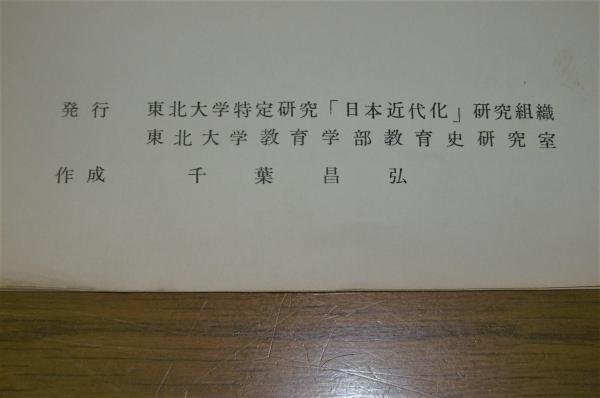 発行 東北大学特定研究「日本近代化」研究組織
東北大学教育学部教育史研究室
作成 千葉昌弘